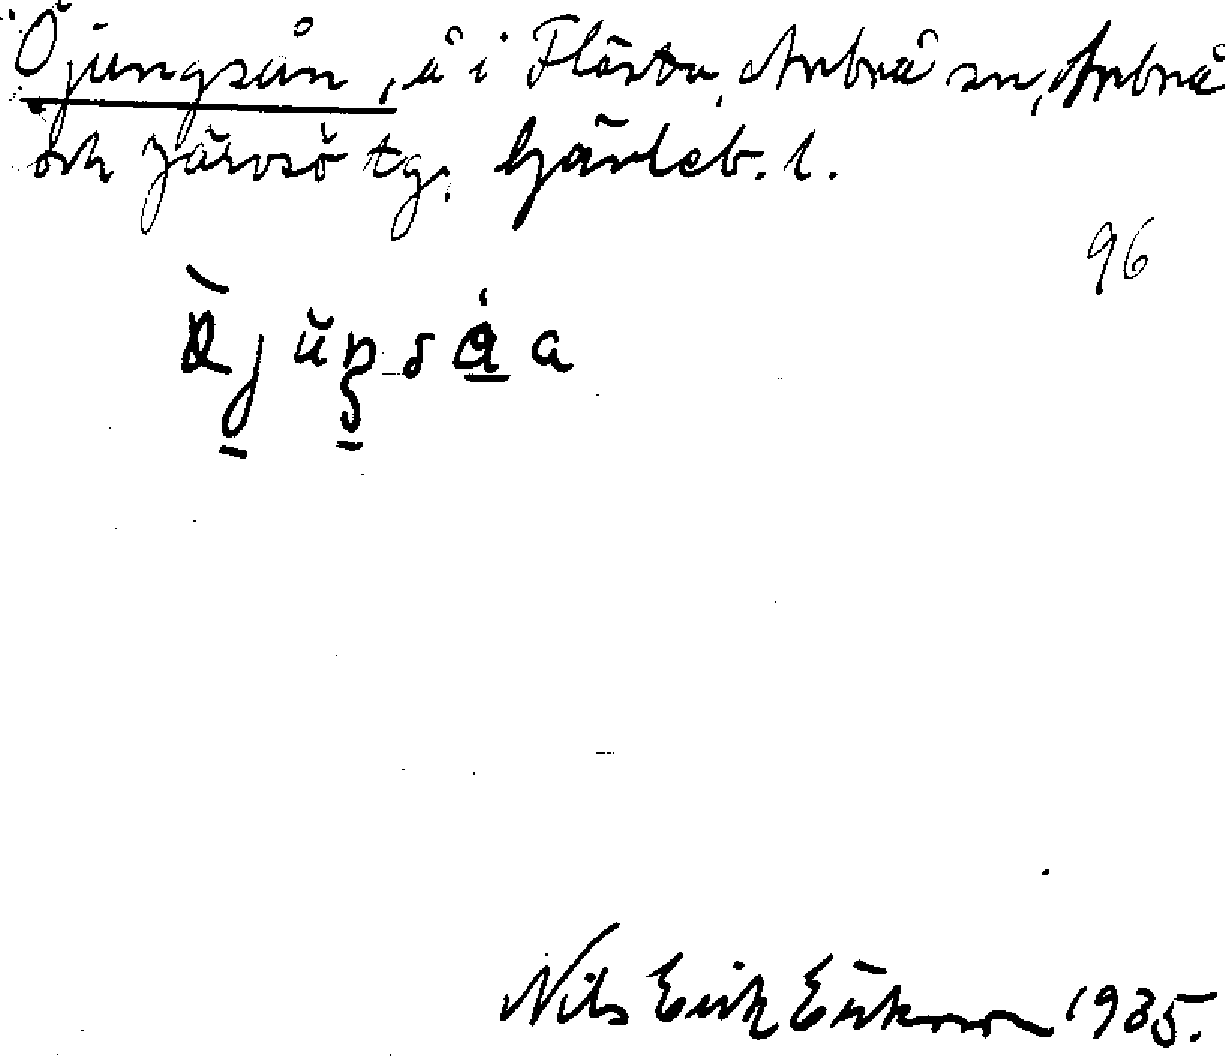 Öjungsån, å i Flästa, Arbrå sn, Arbrå
och Järvsö tg. Gävleb. l.
96
Nils Erik Eriksson 1935.